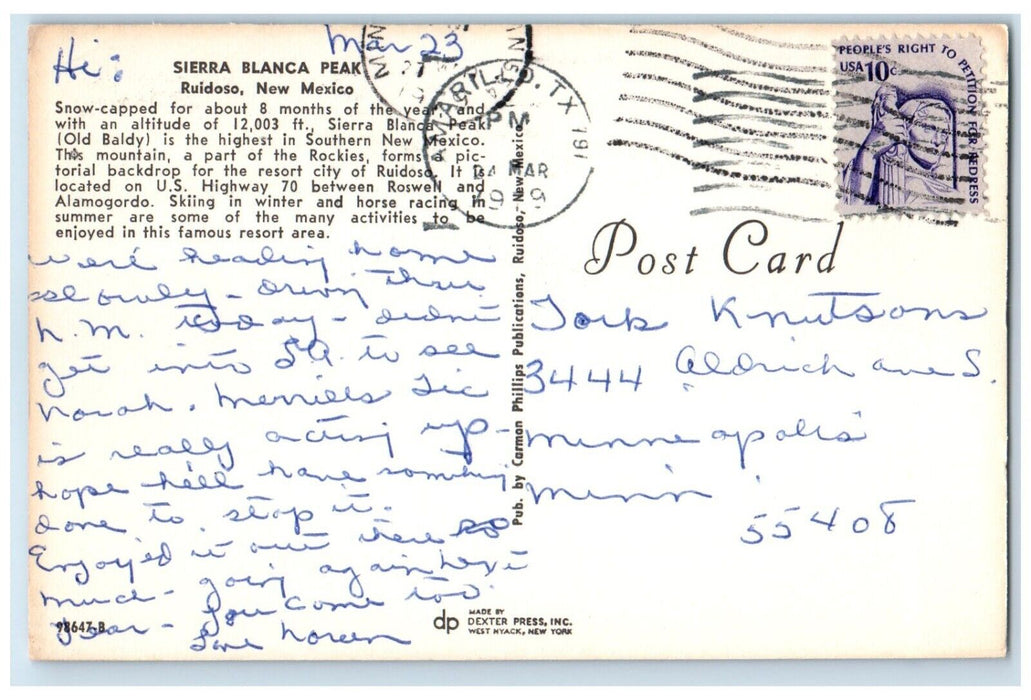 Hi:
Mar 23
SIERRA BLANCA PEAK
Ruidoso, New Mexico
Snow-capped for about 8 months of the year and
with an altitude of 12,003 ft., Sierra Blanca Peak
(Old Baldy) is the highest in Southern New Mexico.
This mountain, a part of the Rockies, forms a pic-
torial backdrop for the resort city of Ruidoso. It is
located on U.S. Highway 70 between Roswell and
Alamogordo. Skiing in winter and horse racing in
summer are some of the many activities to be
enjoyed in this famous resort area.
were heading home
slowly - driving thru
N.M. today - didn't
get into to see
Norah. Merrills Tic
is really acting up -
hope he'll have something
done to stop it.
Enjoyed it out there so
much - going again next
year - You come too.
Love Noreen
98647-B
Pub. by Carman Phillips Publications, Ruidoso, New Mexico
AMARILLO, TX 791
PM
24 MAR
PEOPLE'S RIGHT TO PETITION FOR REDRESS
USA 10c
Post Card
Knutsons
3444 Aldrich Ave S.
Minneapolis
Minn
55408
dp
MADE BY
DEXTER PRESS, INC.
WEST NYACK, NEW YORK